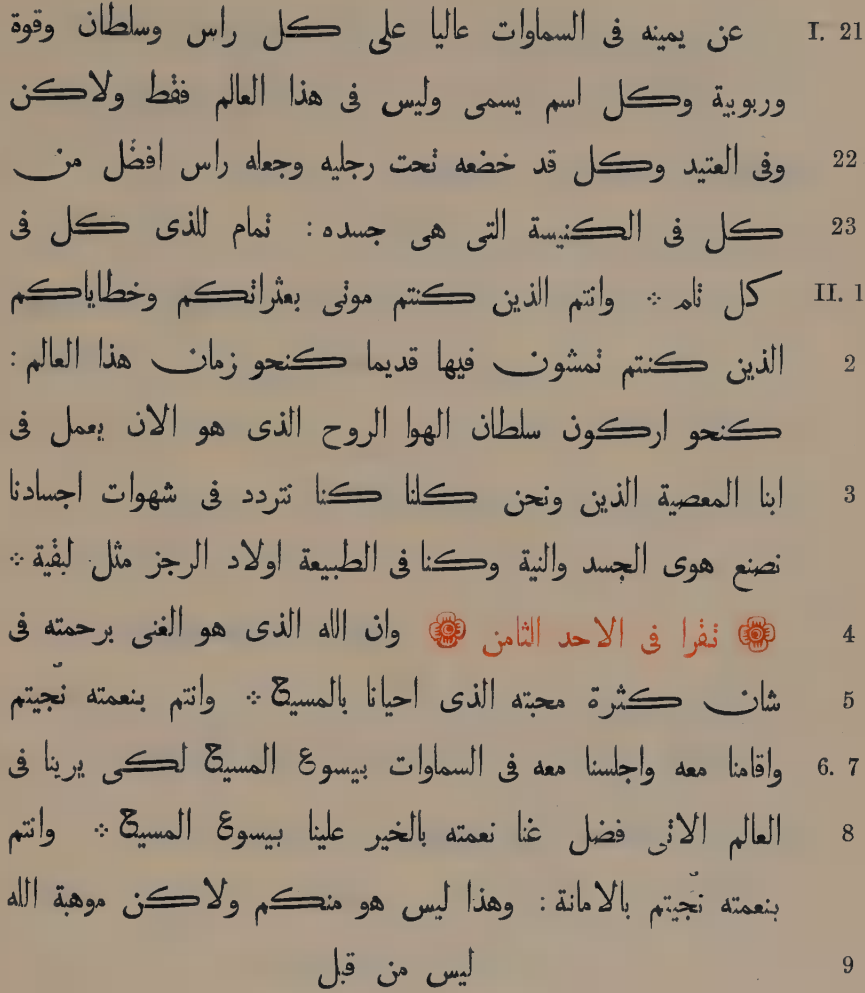 I. 21 عن يمينه فى السماوات عاليا على كل راس وسلطان وقوة
وربوبية وكل اسم يسمى وليس فى هذا العالم فقط ولاكن
22 وفى العتيد وكل قد خضعه تحت رجليه وجعله راس افضل من
23 كل فى الكنيسة التى هى جسده : تمام للذى كل فى
II. 1 كل تام ⁘ وانتم الذين كنتم موتى بعثراتكم وخطاياكم
2 الذين كنتم تمشون فيها قديما كنحو زمان هذا العالم :
كنحو اركون سلطان الهوا الروح الذى هو الان يعمل فى
3 ابنا المعصية الذين ونحن كلنا كنا نتردد فى شهوات اجسادنا
نصنع هوى الجسد والنية وكنا فى الطبيعة اولاد الرجز مثل لبقية ⁘
4 تقرا فى الاحد الثامن وان الله الذى هو الغنى برحمته فى
5 شان كثرة محبته الذى احيانا بالمسيح ⁘ وانتم بنعمته نجّيتم
6. 7 واقامنا معه واجلسنا معه فى السماوات بيسوع المسيح لكى يرينا فى
8 العالم الاتى فضل غنا نعمته بالخير علينا بيسوع المسيح ⁘ وانتم
بنعمته نجّيتم بالامانة : وهذا ليس هو منكم ولاكن موهبة الله
9 ليس من قبل